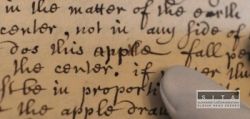 in the matter of the earth
center, not in any side of
dos this apple fall pe
the center. if
st be in proporti
the apple draw
SITA